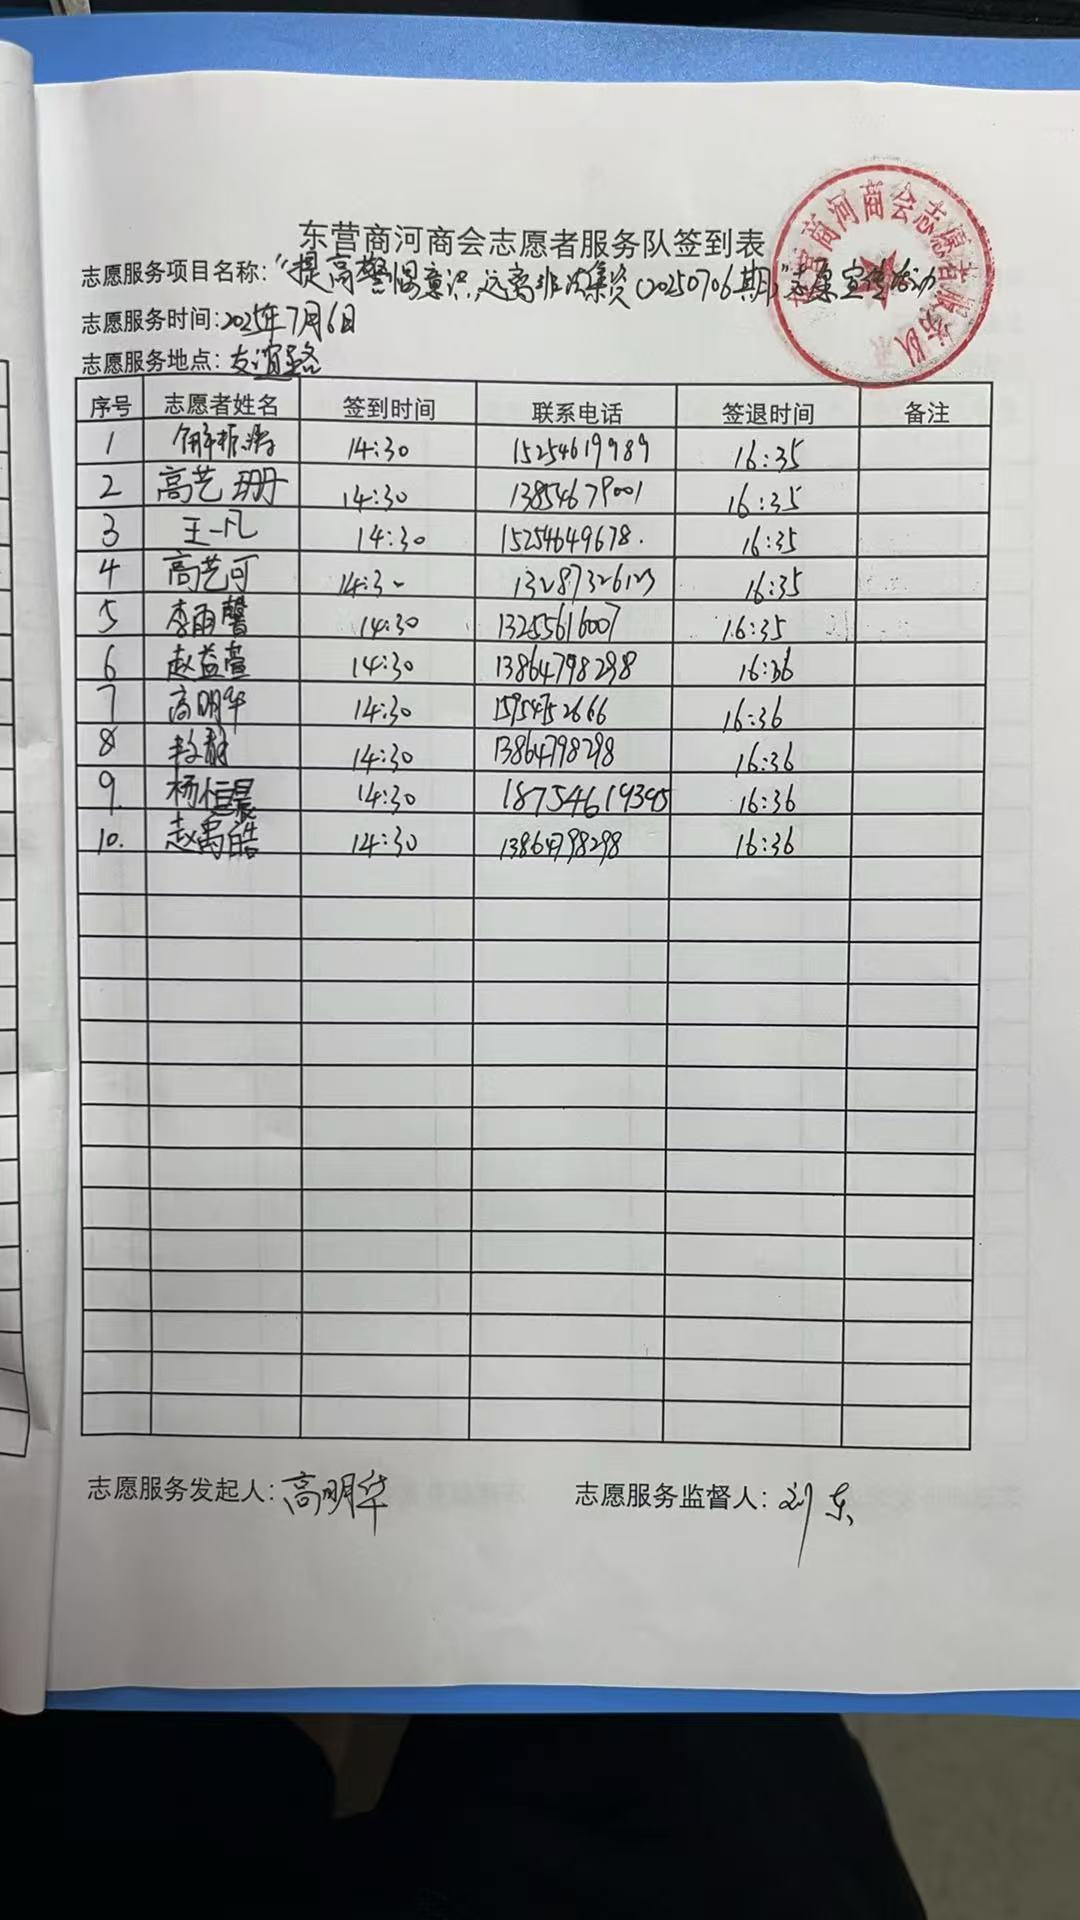 东营商河商会志愿者服务队
东营商河商会志愿者服务队签到表
志愿服务项目名称：“提高警惕意识，远离非法集资（20250706期）”志愿宣传活动
志愿服务时间：2025年7月6日
志愿服务地点：友谊路
序号 志愿者姓名 签到时间 联系电话 签退时间 备注
1 14:30 15254619989 16:35
2 高艺珊 14:30 13854679001 16:35
3 王一凡 14:30 15254649678. 16:35
4 高艺可 14:30 13287326123 16:35
5 李雨馨 14:30 13255616007 16:35
6 赵益萱 14:30 13864798298 16:36
7 高明华 14:30 15954752666 16:36
8 14:30 13864798298 16:36
9. 杨恒晨 14:30 18754619395 16:36
10. 赵禹皓 14:30 13864798298 16:36
志愿服务发起人：高明华 志愿服务监督人：刘东